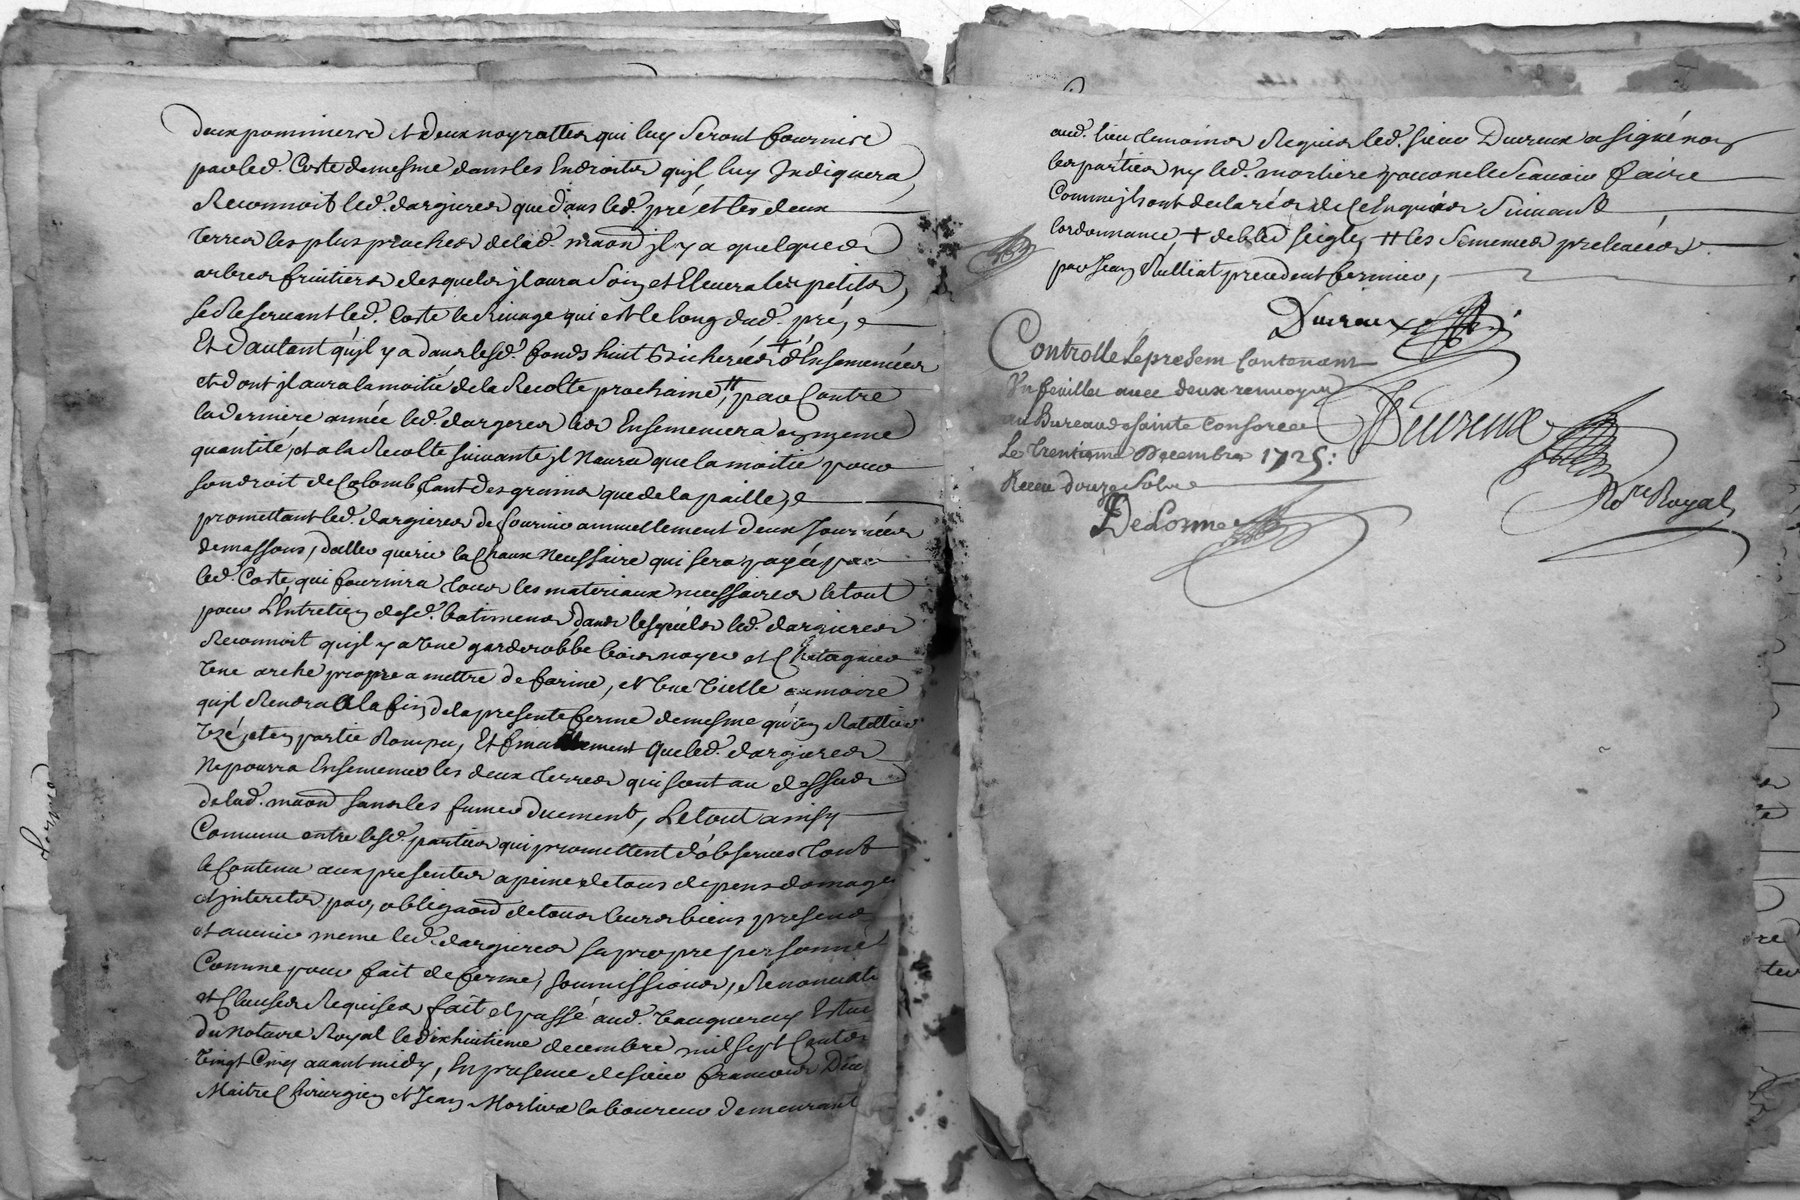 deux pommiers et deux noyrattes qui luy seront fournis
par led. Coste de mesme dans les Endroits qujl luy Jndiquera,
Reconnoit led. dargieres que dans led. pré et les deux
terres les plus proches de lad. maon jl y a quelques
arbres fruitiers desquels jl aura soin et Elevera les petits,
se Reservant led. Coste le Rivage qui est le long dud. pré,
Et d'autant qujl y a dans lesd. fonds huit Bicherées + d'Ensemencées
et dont jl aura la moitié de la Recolte prochaine, # par Contre
la derniere année led. dargieres les Ensemencera en meme
quantité, et a la Recolte suivante jl Naura que la moitié pour
son droit de Colomb, tant des grains que de la paille,
promettant led. dargieres de fournir annuellement deux Journées
de massons, d'aller querir la Chaux Necessaire qui sera payée par
led. Coste qui fournira tous les materiaux necessaires le tout
pour L'Entretien desd. batimens dans lesquels led. dargieres
Reconnoit qujl y a Une garderobbe bois noyer et Chatagnier
Une arche propre a mettre de farine, et Une Vielle armoire
qujl Rendra a la fin de la presente ferme de mesme qu'un Ratellier
Uzé, et en partie Rompu, Et finallement que led. dargieres
Ne pourra Ensemencer les deux terres qui sont au dessus
de lad. maon sans les fumer duement, Le tout ainsy
Convenu entre lesd. parties qui promettent d'observer tout
le Contenu aux presentes a peine de tous depens domages
et jnterets par, obligaon de tous leurs biens presens
et avenir meme led. dargieres sa propre personne
Comme pour fait de ferme, soumissions, Renonciat
et Clauses Requises fait et passé aud. Vaugneray Estude
du Notaire Royal le dixhuitieme decembre mil sept Cents
Vingt Cinq avant midy, En presence de sieur francois
Maitre Chirurgien et Jean Mortiere laboureur demeurant
aud. lieu temoins Requis led. sieur Duvreux a signé non
les parties ny led. mortiere pour ne le scavoir faire
Comm'jls ont declarés de Ce Enquis Suivant
lordonnance, + de bled seigle, # les semences prelevées
par Jean Rulliat precedent fermier,
Duvreux
Controllé le presem Contenant
Un feuillet avec deux renvoyes
au Bureau de sainte Consorce
Le trentieme Decembre 1725:
Receu douze Sols
DeLorme
Duvreux
Nore Royal